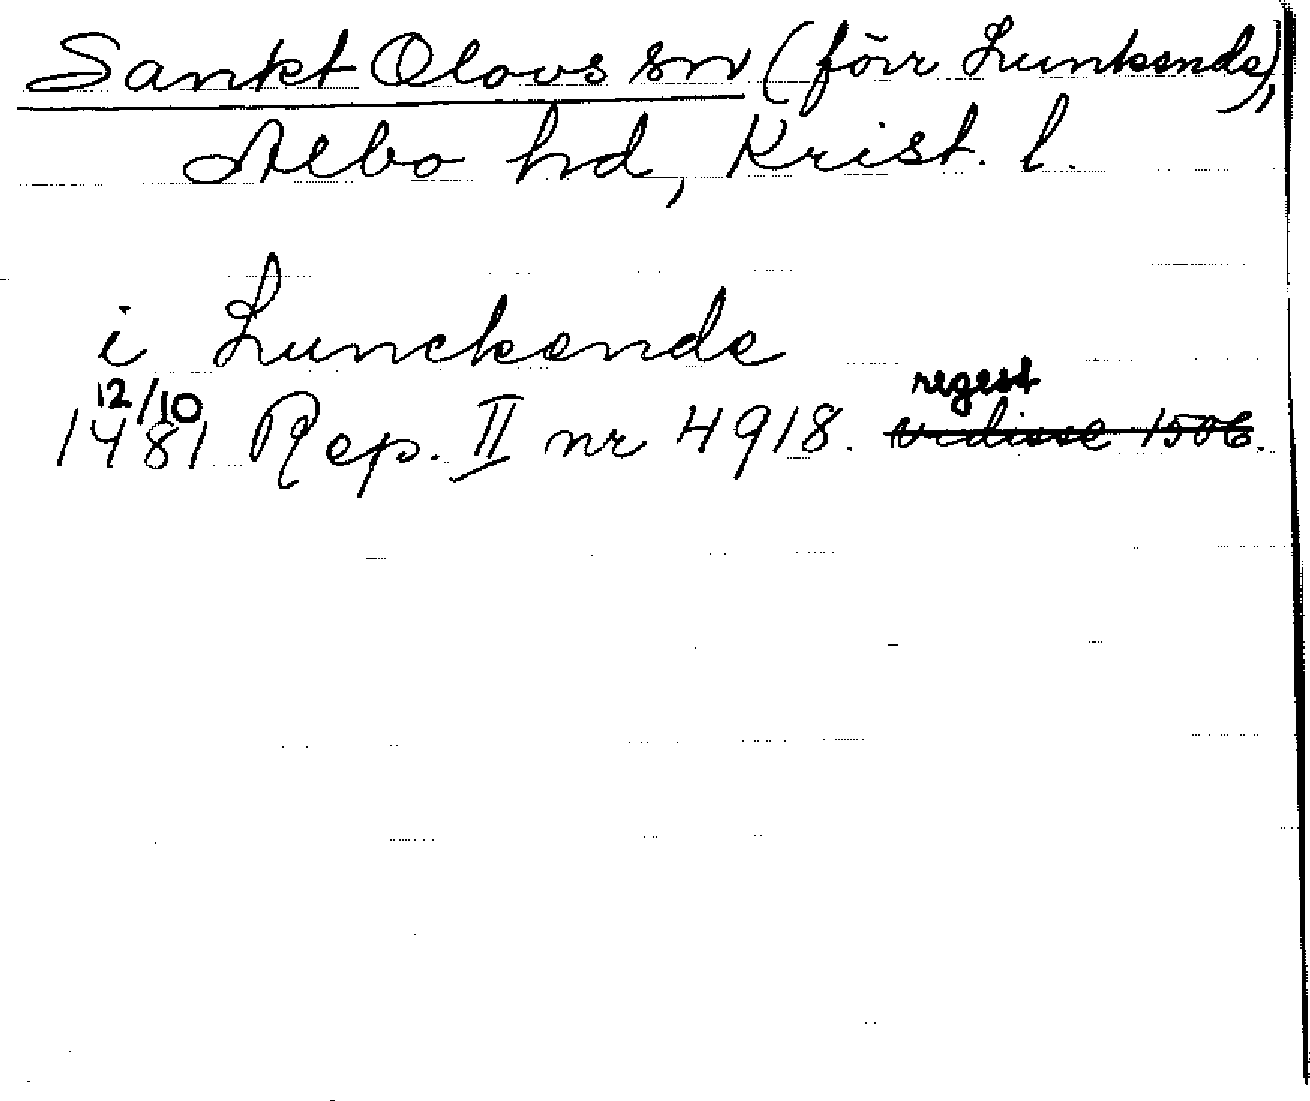 Sankt Olovs sn (förr Lunkende),
Albo hd, Krist. l.
i Lunckende
12/10 regest
1481 Rep. II nr 4918. vidisse 1506.